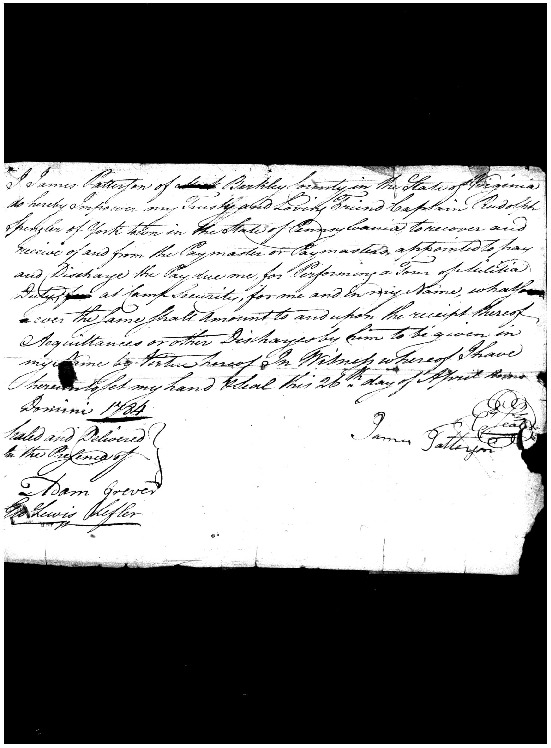 I James Patterson of Berkley County in the State of Virginia
do hereby Impower my Trusty and Loving Friend Captain Rudolph
Spengler of York town in the State of Pennsylvania to recover and
receive of and from the Paymaster or Paymasters, appointed to pay
and Discharge the Pay due me, for Performing a Tour of Militia
Duty at Camp Security, for me and in my Name, whatso
ever the same shall amount to and upon the receipt thereof
Acquittances or other Discharges by him to be given in
my Name by Virtue hereof In Witness whereof I have
hereunto set my hand & Seal this 26th day of April Anno
Domini 1784
Sealed and Delivered
in the Presence of
James Patterson
Seal
Adam Grever
Geo Lewis Lefler